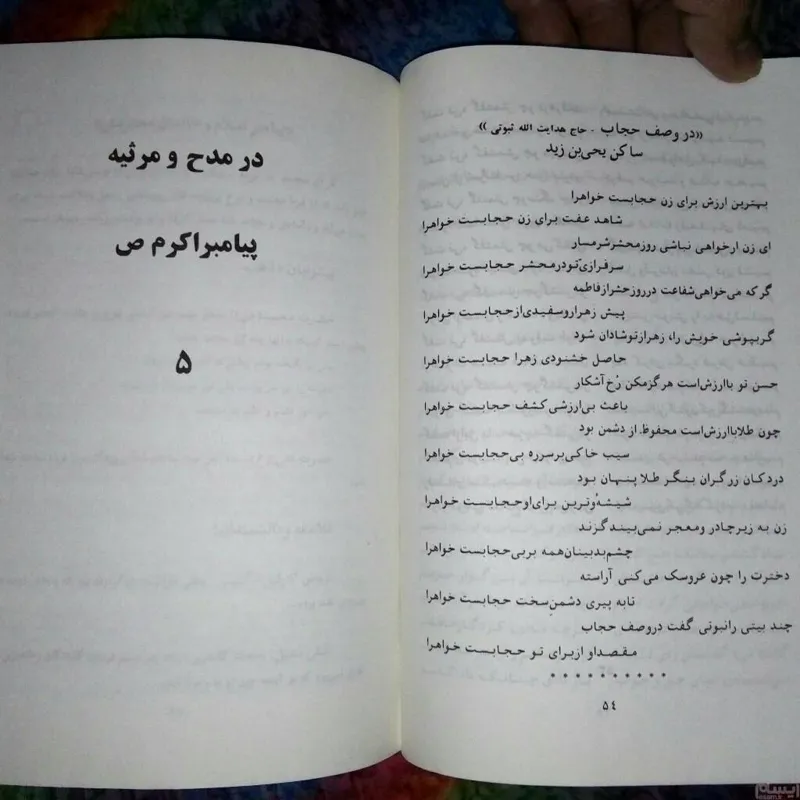 «در وصف حجاب - حاج هدایت الله ثبوتی»
ساکن یحیی‌بن زید
بهترین ارزش برای زن حجابست خواهرا
شاهد عفت برای زن حجابست خواهرا
ای زن ارخواهی نباشی روزمحشرشرمسار
سرفرازی‌تودرمحشر حجابست خواهرا
گر که می‌خواهی‌شفاعت درروزحشرازفاطمه
پیش زهراروسفیدی‌ازحجابست خواهرا
گربپوشی خویش را، زهراز‌توشادان شود
حاصل خشنودی زهرا حجابست خواهرا
حسن تو باارزش‌است هرگزمکن رُخ آشکار
باعث بی‌ارزشی‌کشف حجابست خواهرا
چون طلاباارزش‌است محفوظ. از دشمن بود
سیب خاکی‌برسرره بی‌حجابست خواهرا
دردکان زرگران بنگر طلا پنهان بود
شیشه‌ُوترین برای‌اوحجابست خواهرا
زن به زیرچادر ومعجر نمی‌بیند گزند
چشم‌بدبینان‌همه بربی‌حجابست خواهرا
دخترت را چون عروسک می‌کنی آراسته
تابه پیری دشمنِ‌سخت حجابست خواهرا
چند بیتی راثبوتی گفت دروصف حجاب
مقصداو ازبرای تو حجابست خواهرا
* * * * * * * * * *
٥٤
در مدح و مرثیه
پیامبراکرم ص
۵
ایسام
esam.ir